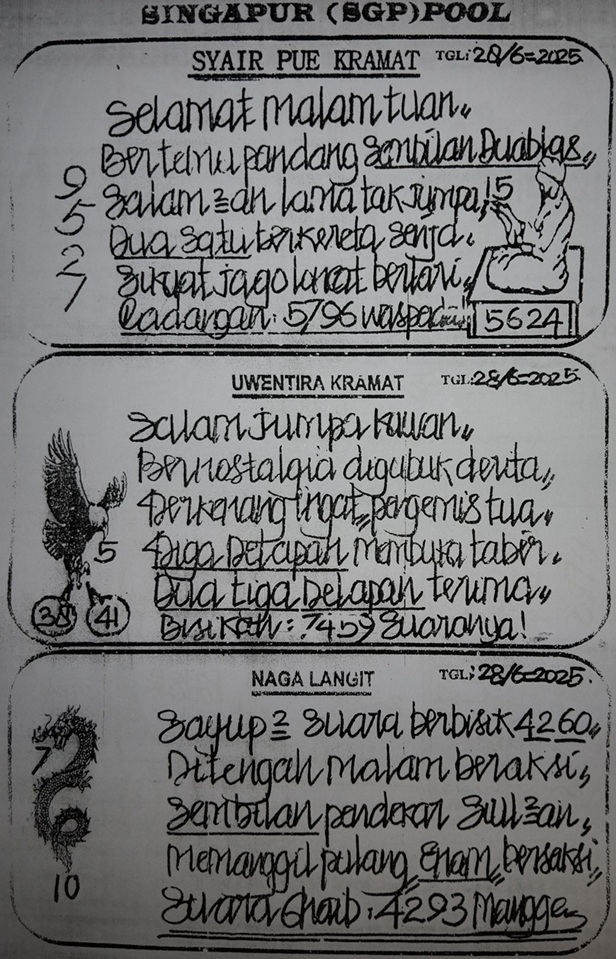 SINGAPUR (SGP) POOL
SYAIR PUE KRAMAT TGL: 28/6=2025
Selamat malam tuan,,
Bertemu pandang Sembilan Duablas,,
9 Salam = an lama tak jumpa! 5
5 Dua Satu berkereta senja.
2
7 Sikuat jago loncat berlari,,
Cadangan: 5796 waspada!! 5624
UWENTIRA KRAMAT TGL: 28/6=2025
Salam jumpa kawan,,
Bernostalgia digubuk derita,,
Terkenang ingat = pengemis tua,,
5 Tiga Delapan membuka tabir.
38 41 Dua tiga Delapan terima,,
Bisikan: 7459 Suaranya!
NAGA LANGIT TGL: 28/6=2025.
Sayup 2 = Suara berbisik 4260,,
7 Ditengah malam beraksi,
Sembilan pendekar
Memanggil pulang Enam,, bersaksi,,
10 Suara Ghaib: 4293 Mangge,,